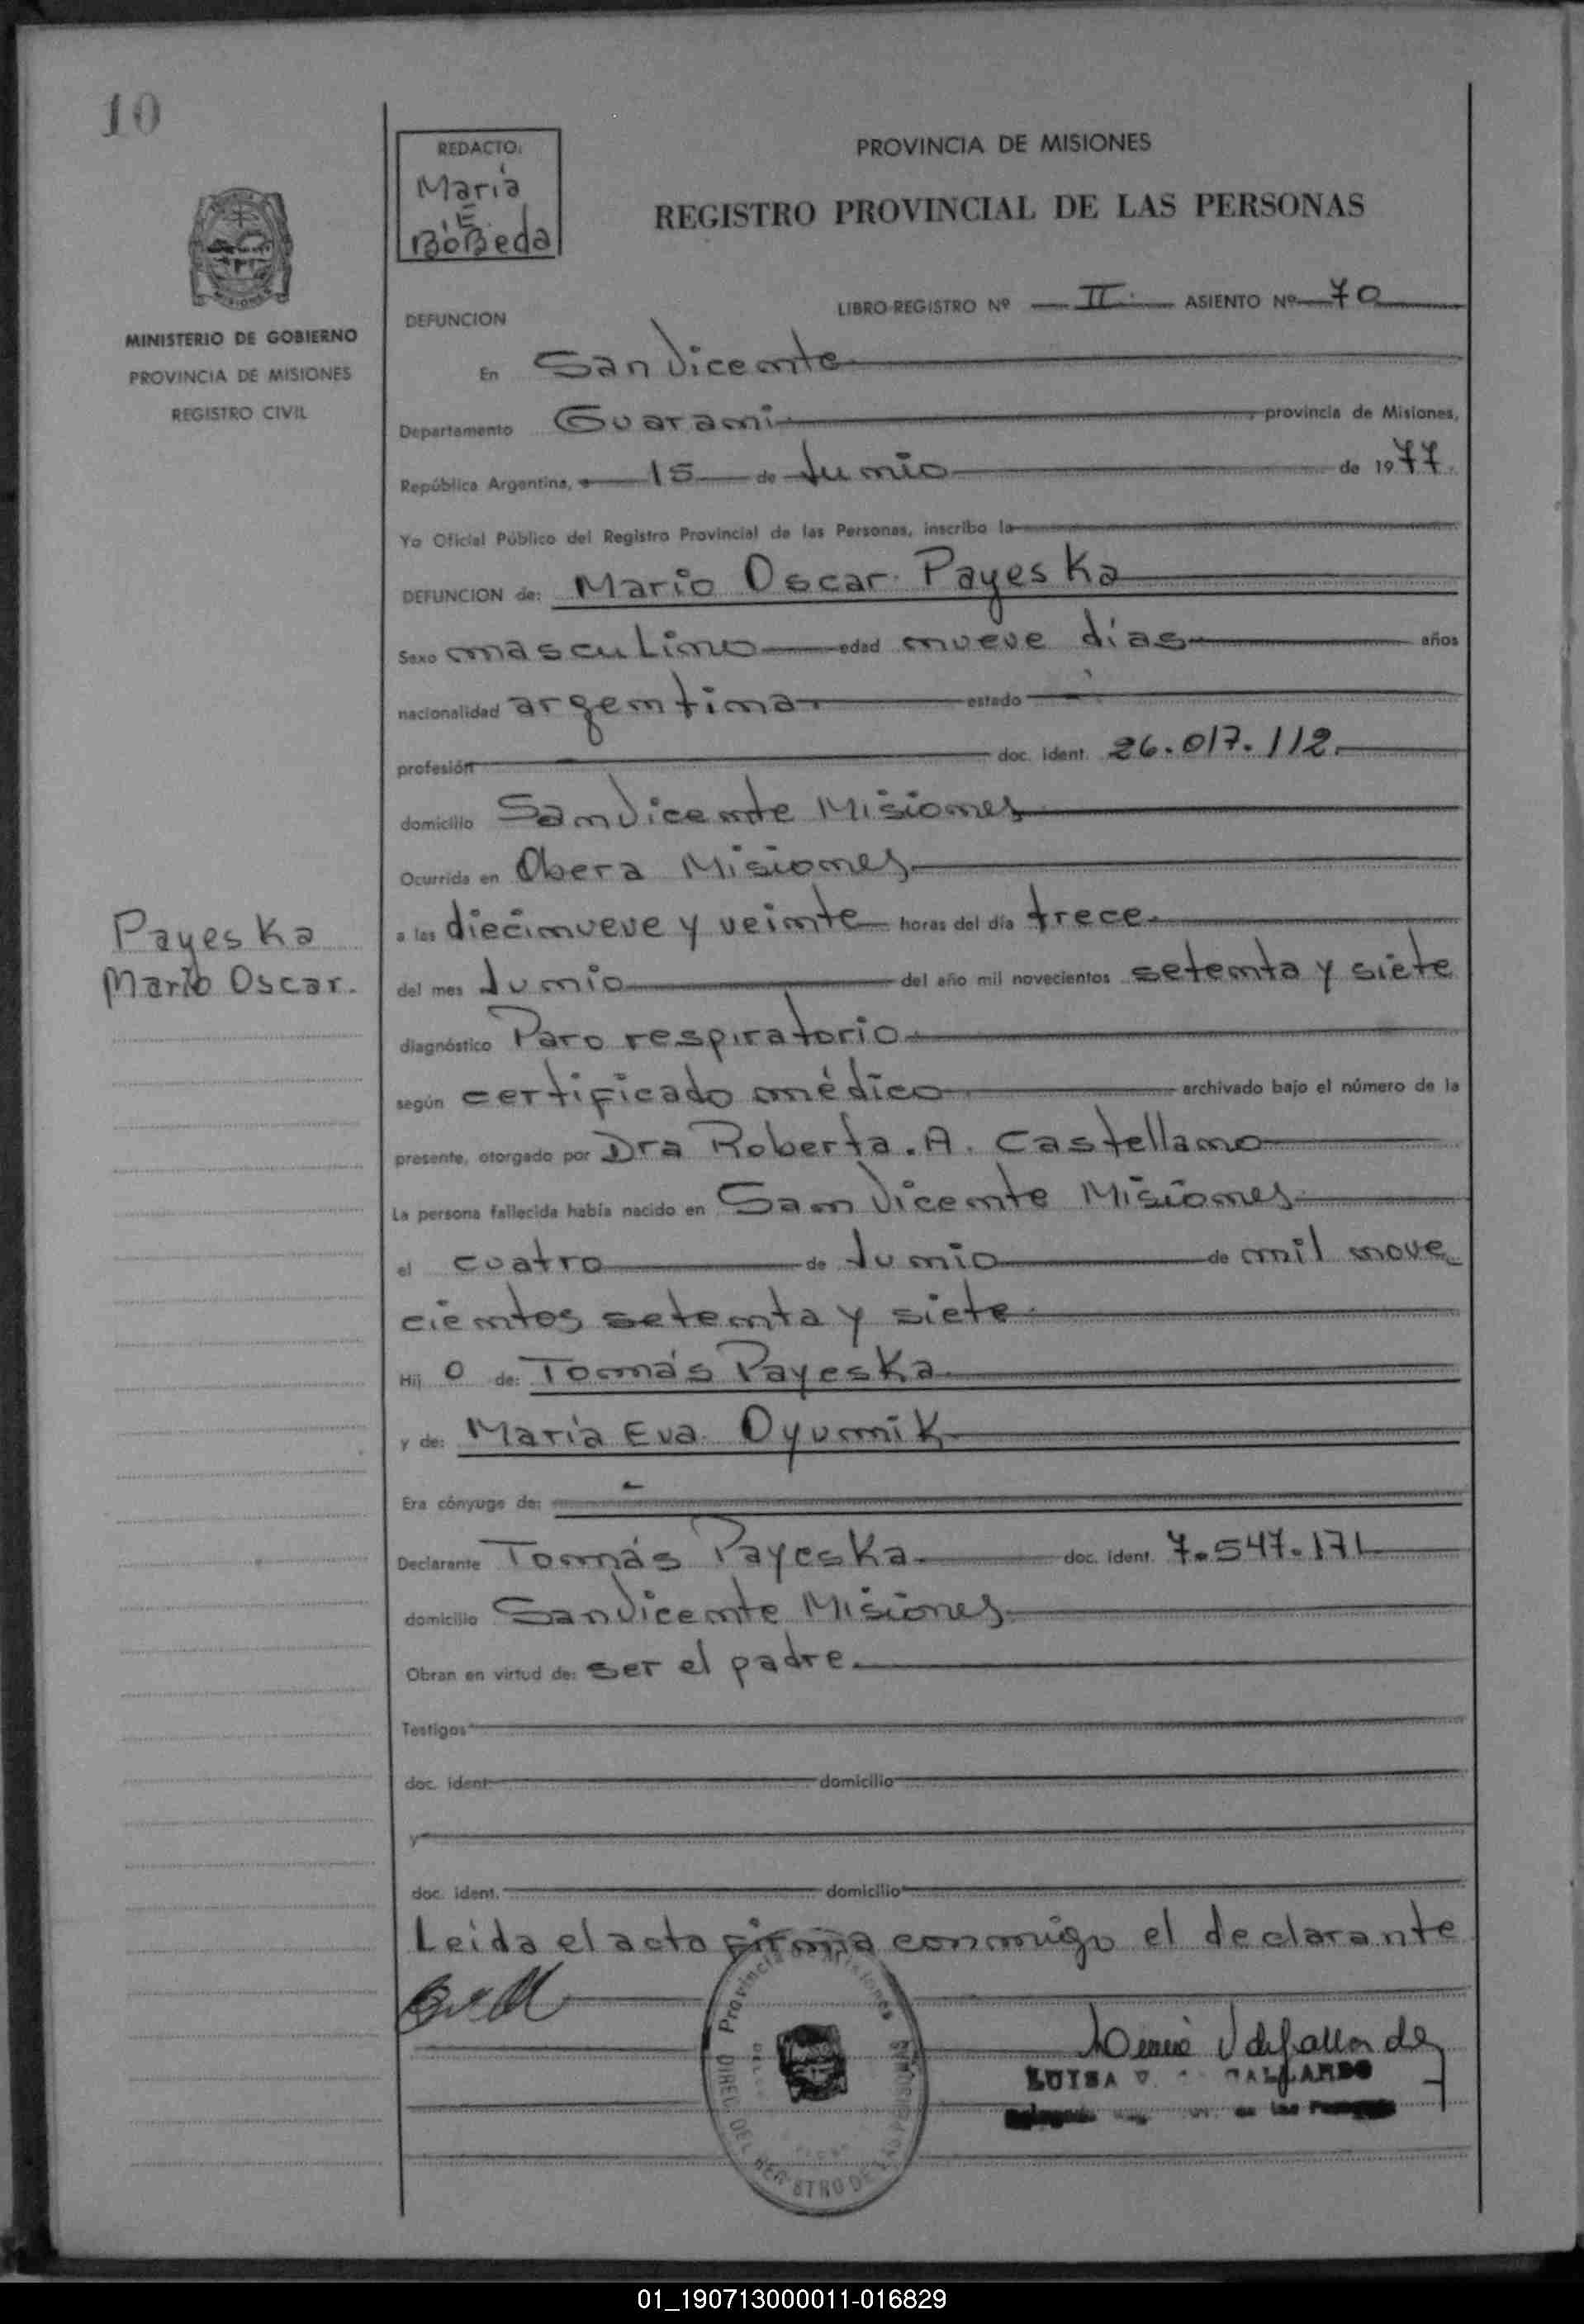 10
REDACTO:
Maria
E.
BoBeda
PROVINCIA DE MISIONES
REGISTRO PROVINCIAL DE LAS PERSONAS
MISIONES
MINISTERIO DE GOBIERNO
PROVINCIA DE MISIONES
REGISTRO CIVIL
LIBRO-REGISTRO Nº II. ASIENTO Nº 70
DEFUNCION
En San Vicente
Departamento Guarani, provincia de Misiones,
República Argentina, a 15 de Junio de 1977.
Yo Oficial Público del Registro Provincial de las Personas, inscribo la
DEFUNCION de: Mario Oscar Payeska
Sexo masculino edad nueve días años
nacionalidad argentina estado
profesión doc. ident. 26.017.112.
domicilio San Vicente Misiones
Ocurrida en Obera Misiones
a las diecinueve y veinte horas del día trece
del mes Junio del año mil novecientos setenta y siete
diagnóstico Paro respiratorio
según certificado médico archivado bajo el número de la
presente, otorgado por Dra Roberta. A. Castellano
La persona fallecida había nacido en San Vicente Misiones
el cuatro de Junio de mil nove
cientos setenta y siete
Hij o de: Tomás Payeska
y de: Maria Eva Oyunik
Payeska
Mario Oscar.
Era cónyuge de:
Declarante Tomás Payeska doc. ident. 7.547.171
domicilio San Vicente Misiones
Obran en virtud de: ser el padre.
Testigos
doc. ident. domicilio
y
doc. ident. domicilio
Leida el acta firma conmigo el declarante
Provincia de Misiones
DIREC. DEL REGISTRO DE LAS PERSONAS
LUISA V. GALLARDO
01_190713000011-016829